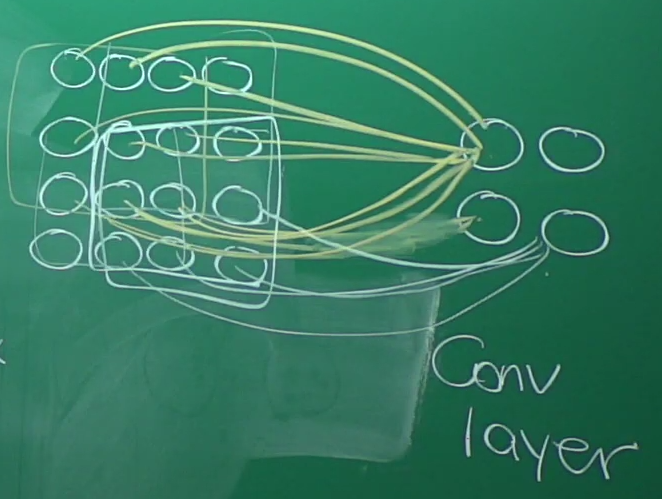 Conv
layer